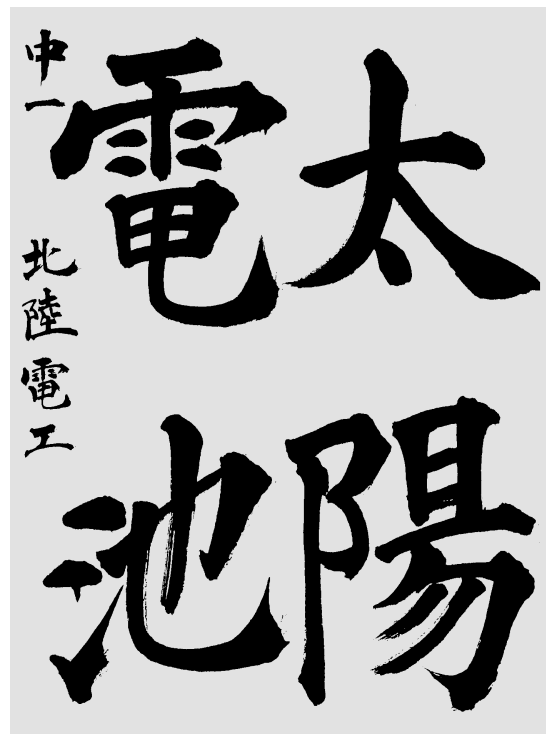 太陽
電池
中一 北陸電工